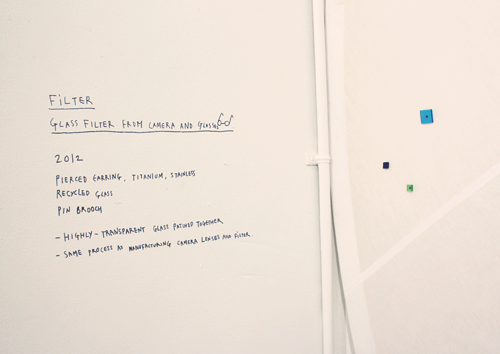 FILTER
GLASS FILTER FROM CAMERA AND GLASS
2012
PIERCED EARRING, TITANIUM, STAINLESS
RECYCLED GLASS
PIN BROOCH
- HIGHLY-TRANSPARENT GLASS PATINED TOGETHER
- SAME PROCESS AS MANUFACTURING CAMERA LENSES AND FILTER.